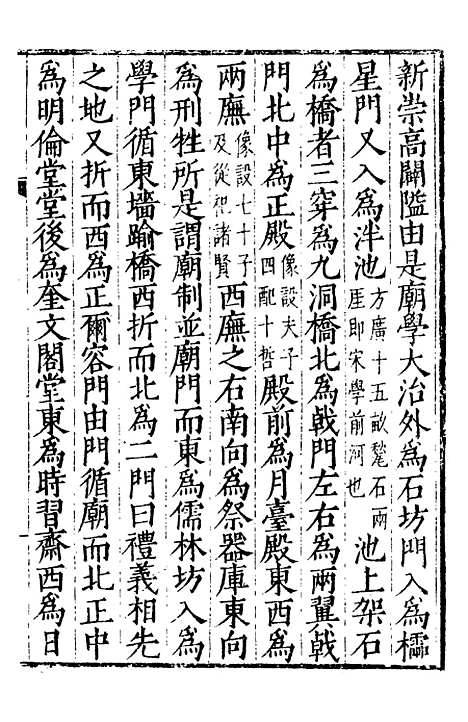 新崇高闢隘由是廟學大治外爲石坊門入爲櫺
星門又入爲泮池方廣十五畝甃石兩厓即宋學前河也池上架石
爲橋者三穿爲九洞橋北爲㦸門左右爲兩翼㦸
門北中爲正殿像設夫子四配十哲殿前爲月臺殿東西爲
兩廡像設七十子及從祀諸賢西廡之右南向爲祭器庫東向
爲刑牲所是謂廟制並廟門而東爲儒林坊入爲
學門循東墻踰橋西折而北爲二門曰禮義相先
之地又折而西爲正爾容門由門循廟而北正中
爲明倫堂堂後爲奎文閣堂東爲時習齋西爲日